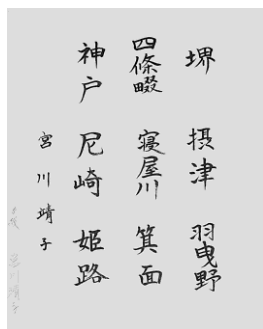 堺 摂津 羽曳野
四條畷 寝屋川 箕面
神戸 尼崎 姫路
宮川靖子